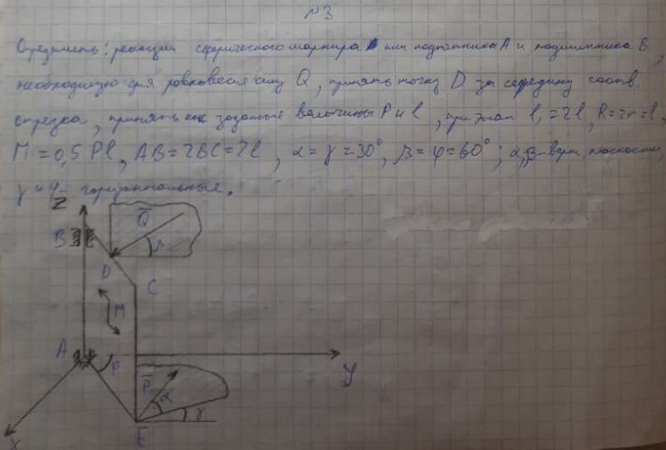 №3
Определить: реакции сферического шарнира или подпятника А и подшипника В,
необходимую для равновесия силу Q, принять точку D за середину соотв.
отрезка, принять как заданные величины P и l, при этом l₁=2l, R=2r=l,
M=0,5 Pl, AB=2BC=2l, α=γ=30°, β=φ=60°; α,β- верт. плоскости
γ и φ- горизонтальные.
Z
B
Q
β
D
C
M
A
φ
y
P
α
γ
x
E